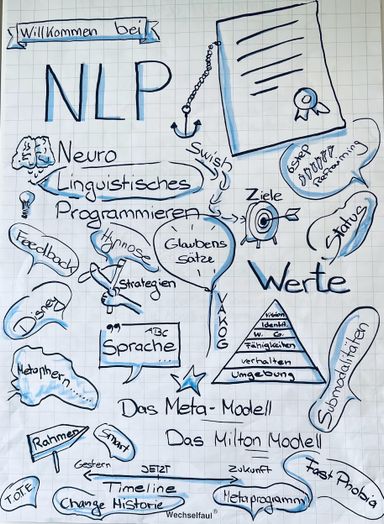 Willkommen bei
NLP
Neuro
Linguistisches
Programmieren
Swish
6 Step
Reframing
Ziele
Status
Feedback
Hypnose
Strategien
Glaubens
sätze
Werte
Disney
VAKOG
ABC
Sprache
Vision
Identit.
W. G.
Fähigkeiten
Verhalten
Umgebung
Submodalitäten
Metaphern......
Das Meta-Modell
Das Milton Modell
Rahmen
Smart
Gestern JETZT Zukunft
Timeline
Fast Phobia
TOTE
Change Historie
Metaprogramm
Wechselfaul®